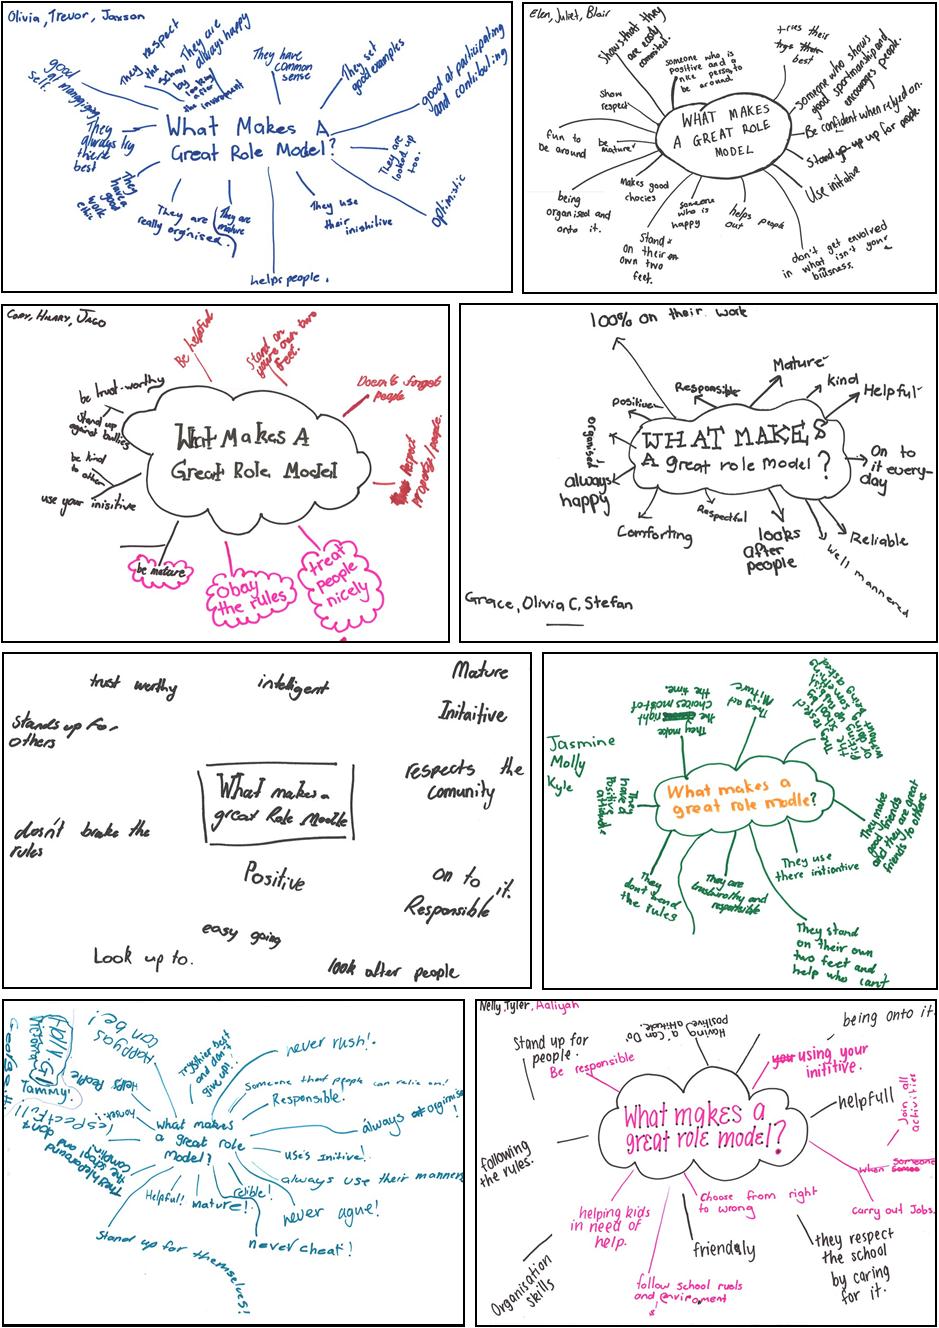 Olivia, Trevor, Jaxson
What Makes A
Great Role Model?
good
at managing
self.
They respect
the
school
by
looking
after
the
They are
always happy
They have
common
sense
They set
good examples
good at participating
and contributing
They
always try
there
best
They
have a
good
work
ethic
They are
really orginised.
They are
mature
helps people.
They use
their
inishitive
They are
looked up
too.
Optimistic
Elen, Juliet, Blair
WHAT MAKES
A GREAT ROLE
MODEL
Shows that they
are easily
commited
someone who is
positive and a
nice person to
be around
tries their
best
someone who shows
good sportmanship and
encourages people.
Be confident when relyed on.
Stand up up for people.
Use initative
Show
respect
fun to
be around
be
mature
being
organised and
onto it.
Makes good
chocies
Stand
on their
own two
feet.
someone
who is
happy
helps
out people
don't get envolved
in what isn't your
biusness.
Cory, Hilary, Jago
What Makes A
Great Role Model
Be helpful
Stand on
you're own two
feet.
Doesn't forget
people
Respect
property/people.
be trust-worthy
Stand up
against bullies
be kind
to other
use your inisitive
be mature
obay
the rules
treat
people
nicely
WHAT MAKES
A great role model?
100% on their work
Responsible
Mature
kind
Helpful
positive
organised
always
happy
On to
it every-
day
Comforting
Respectful
looks
after
people
Reliable
Well mannered
Grace, Olivia C, Stefan
What makes a
great Role Moodle
trust worthy
intelligent
Mature
Initaitive
Stands up for
others
respects the
comunity
dosn't brake the
rules
Positive
on to it.
Responsible
easy going
Look up to.
look after people
Jasmine
Molly
Kyle
What makes a
great role modle?
They make
the right
choices most of
the time.
They act
Mature
They respect
the school by
picking up rubbish
or doing something
without being asked
They
have a
Positive
attitude
They make
good friends
and they are great
friends to others
They
don't bend
the rules
They are
trustworothy and
responsible
They use
there intiontive
They stand
on their own
two feet and
help who can't
Holly-G
Victoria
Tammy
George H
What makes
a great role
model?
Happy as
can be!
Try thier best
and don't
give up!
never rush!
Someone that people can relie on!
Responsible.
always orginise!
uses Initive!
always use their manners
never ague!
never cheat!
relible!
mature!
Helpful!
Stand up for themselves!
Helps People
honest!
respectfull
Nelly, Tyler, Aaliyah
What makes a
great role model?
Stand up for
people.
Be responsible
Having a "Can Do"
positive attitude.
being onto it.
using your
inititive.
helpfull
Join all
activities
when someone
carry out Jobs.
following
the rules.
helping kids
in need of
help.
Choose from right
to wrong
friendly
Organisation
skills
follow school ruols
and enviroment
they respect
the school
by caring
for it.